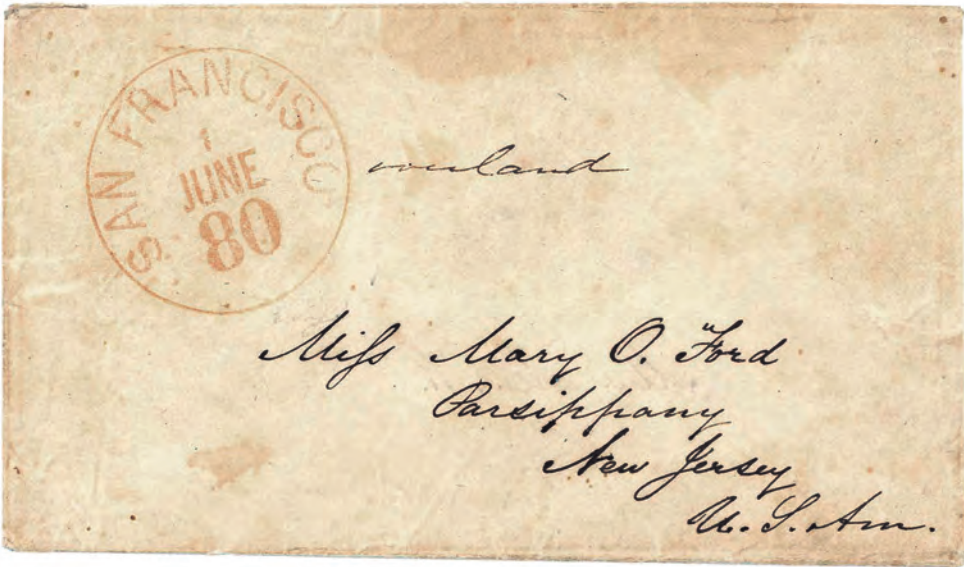 SAN FRANCISCO
1
JUNE
80
overland
Miſs Mary O. Ford
Parsippany
New Jersey
U.S. Am.